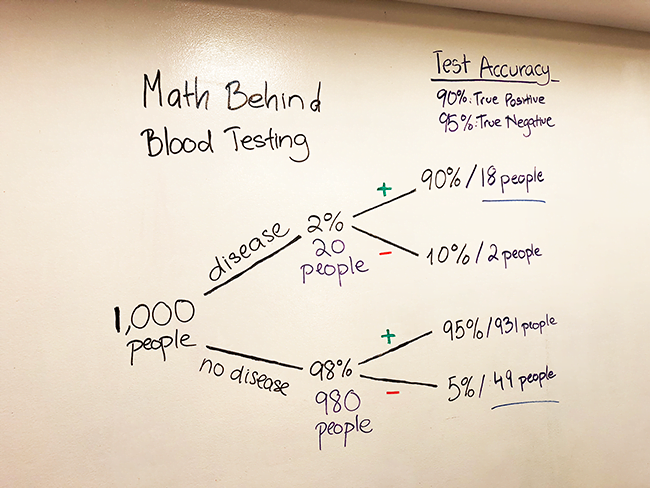 Math Behind
Blood Testing
Test Accuracy
90%: True Positive
95%: True Negative
1,000
people
disease
2%
20
people
+
90% / 18 people
−
10% / 2 people
no disease
98%
980
people
+
95% / 931 people
−
5% / 49 people